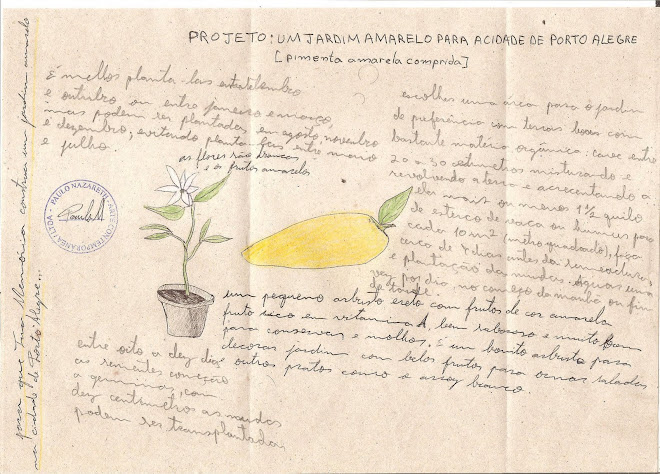 PROJETO: UM JARDIM AMARELO PARA A CIDADE DE PORTO ALEGRE
[pimenta amarela comprida]
É mellos planta-las em setembro
e outubro, ou entre janeiro e março,
mais podem ser plantadas em agosto, novembro
e dezembro; evitando planta-las entre maio
e julho.
as flores são brancas
e os frutos amarelos
escolhes uma área para o jardim
de preferência com terras boas com
bastante matéria orgânica: cave entre
20 a 30 centímetros misturando e
revolvendo a terra e acrescentando a
ela mais ou menos 1 1/2 quilo
de esterco de vaca ou humus para
cada 10 m² (metro quadrado), faça
cerca de 8 dias antes da semeadura
e plantação das mudas. águas uma
vez por dia, no começo da manhã ou fim
de tarde
um pequeno arbusto ereto com frutos de cor amarela
fruto rico em vitamina A, bem saboroso e muito bom
para conservas e molhos. É um bonito arbusto para
decoras jardim com belos frutos para ornar saladas
e outros pratos como o arroz branco.
entre oito a dez dias
as sementes começão
a germinar, com
dez centimetros as mudas
podem ser transplantadas
PAULO NAZARETH - ARTE CONTEMPORÂNEA / LTDA -
para que tua Memória continue um jardim amarelo
na cidade de Porto Alegre...